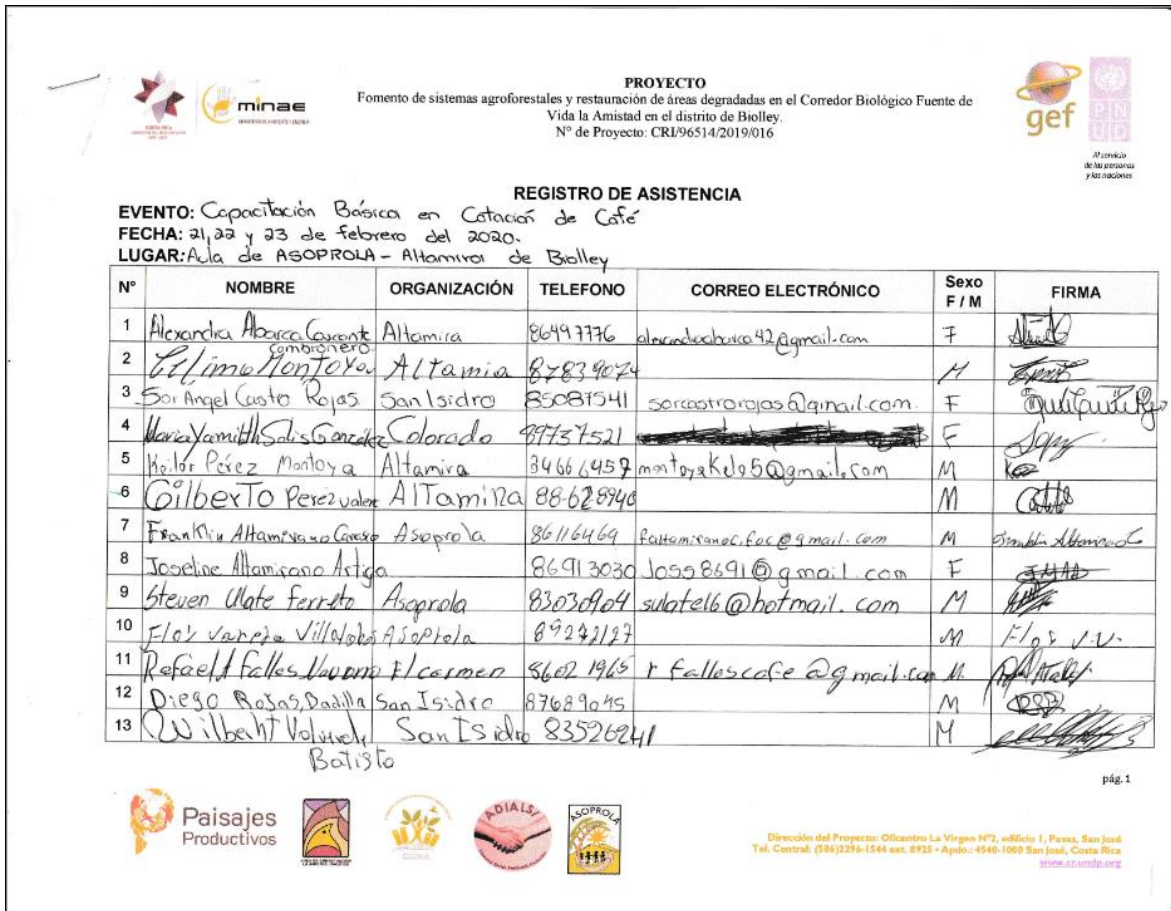 minae
PROYECTO
Fomento de sistemas agroforestales y restauración de áreas degradadas en el Corredor Biológico Fuente de
Vida la Amistad en el distrito de Biolley.
N° de Proyecto: CRI/96514/2019/016
gef
PNUD
Al servicio
de las personas
y las naciones
REGISTRO DE ASISTENCIA
EVENTO: Capacitación Básica en Catación de Café
FECHA: 21,22 y 23 de febrero del 2020.
LUGAR: Aula de ASOPROLA - Altamira de Biolley
N° NOMBRE ORGANIZACIÓN TELEFONO CORREO ELECTRÓNICO Sexo F / M FIRMA
1 Alexandra Abarca Altamira 86497776 F
2 Montoya Altamia 87839074 M
3 Sor Angel Castro Rojas San Isidro 85087541 sorcastrorojas@gmail.com. F
4 Maria Yamilth Solis González Colorado 89737521 F
5 Keilor Pérez Montoya Altamira montoyakel95@gmail.com M
6 Gilberto Perez Altamira 88-628940 M
7 Franklin Altamirano Asoprola 86116469 faltamiranoc.fac@gmail.com M
8 Joseline Altamirano Artiga 86913030 Joss8691@gmail.com F
9 Steven Ulate Ferreto Asoprola 83030904 sulate16@hotmail.com M
10 Villalobos Asoprola 89272127 M
11 Rafael A Fallas El carmen 8602 1965 r fallascafe @gmail.com M.
12 Diego Rojas, Badilla San Isidro 87689045 M
13 San Isidro 83526241 M
Batista
pág. 1
Paisajes
Productivos
ADIALSI
ASOPROLA
Dirección del Proyecto: Oficentro La Virgen N°2, edificio 1, Pavas, San José
Tel. Central: (506)2296-1544 ext. 8925 • Apdo.: 4540-1000 San José, Costa Rica
www.cr.undp.org